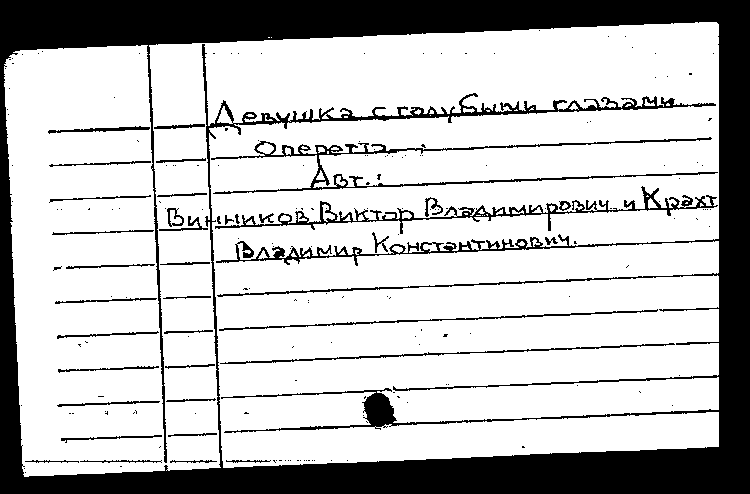 Девушка с голубыми глазами
Оперетта.
Авт.:
Винников, Виктор Владимирович и Крахт
Владимир Константинович.